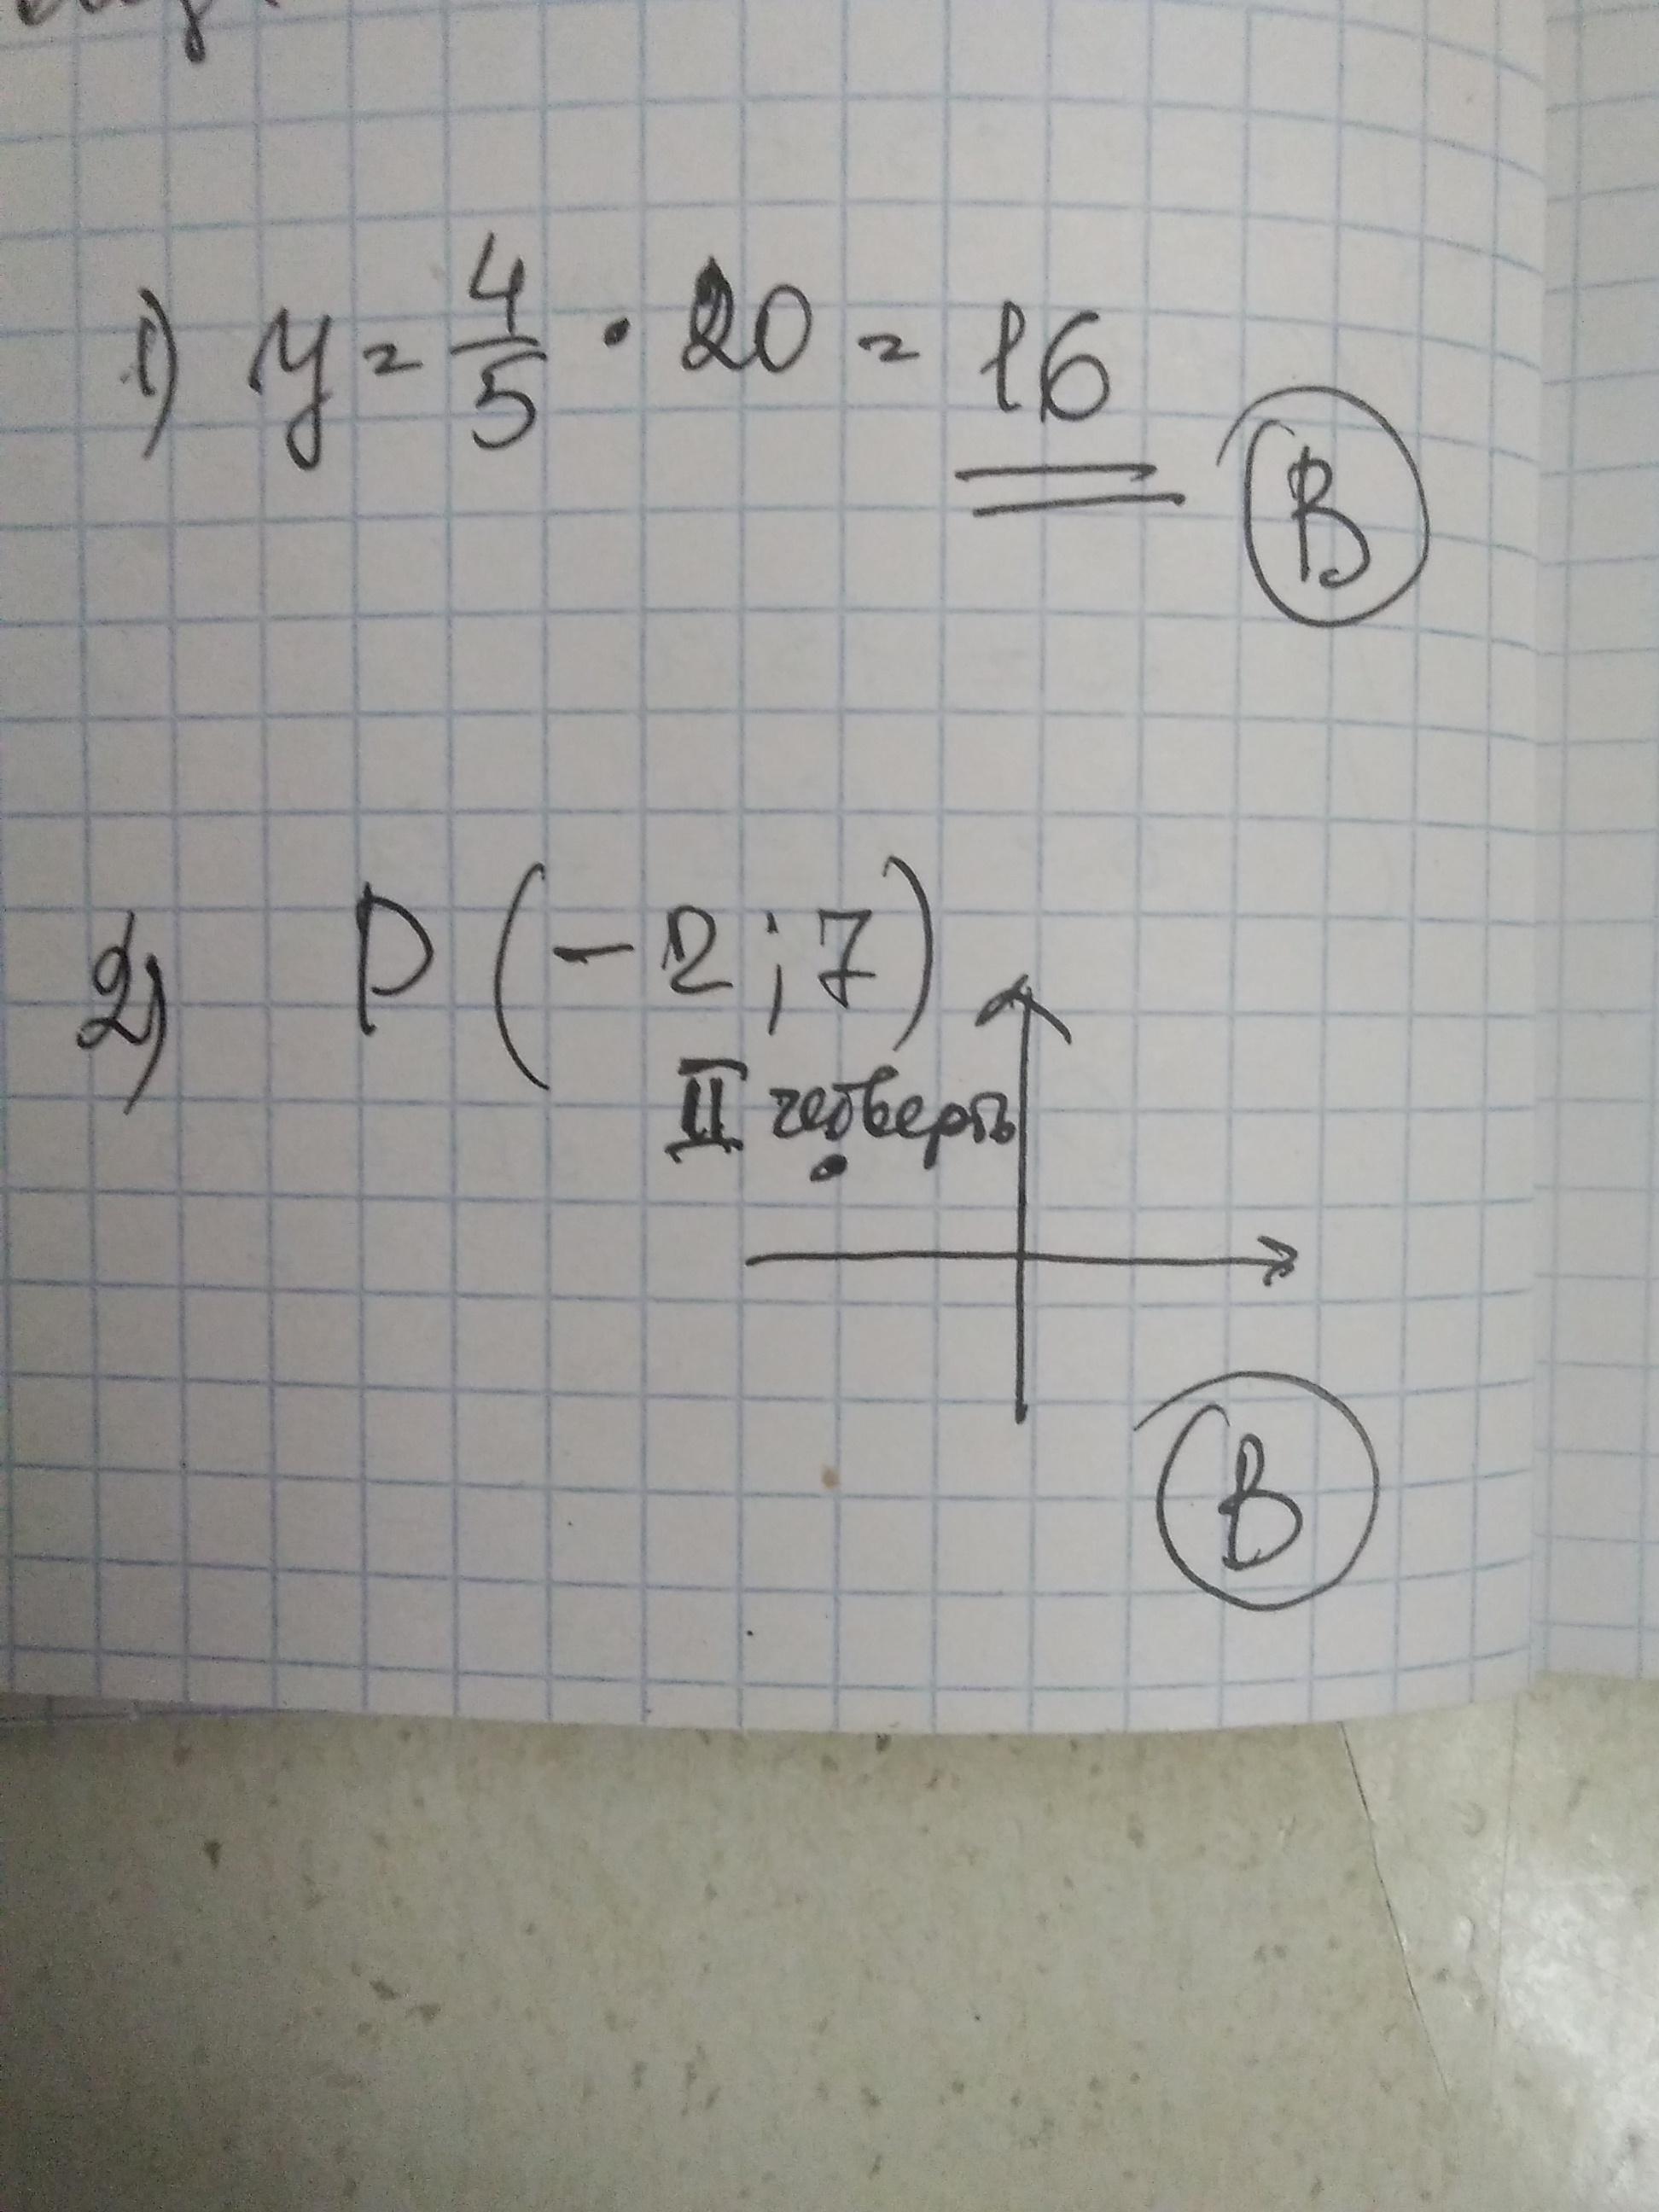 1) y = 4/5 · 20 = 16
В
2) P (-2 ; 7)
II четверть
В